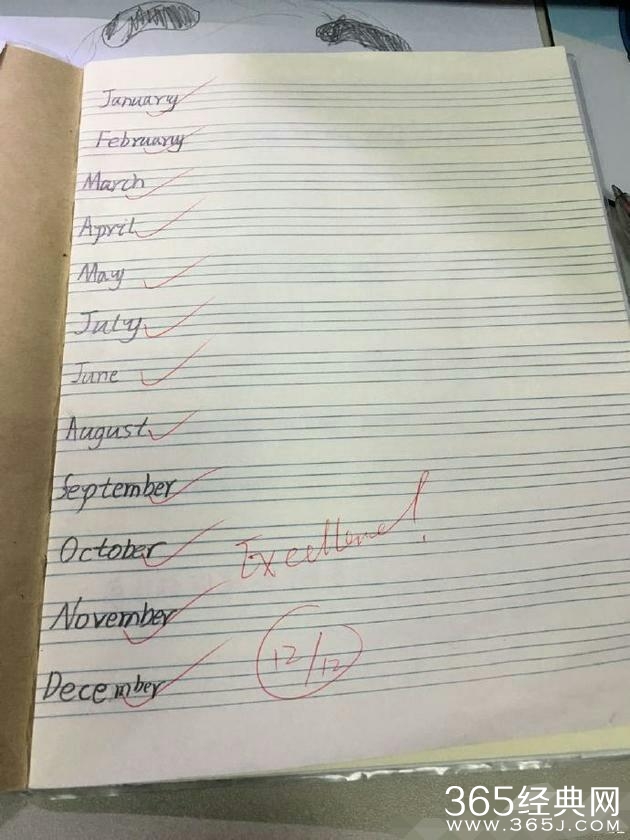 January
February
March
April
May
July
June
August
September
October
Excellent!
November
12/12
December
365经典网
WWW.365J.COM